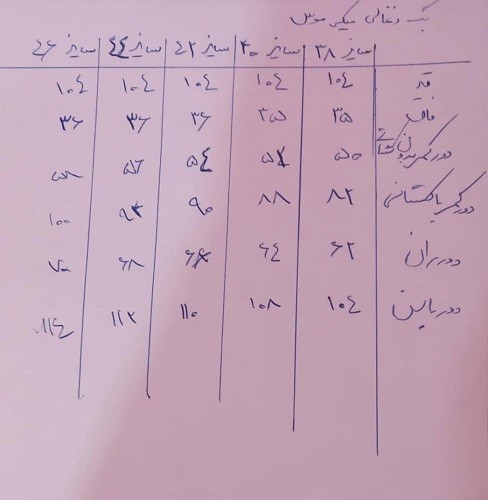 بگ ذغالی میکی موس
سایز ۳۸ سایز ۴۰ سایز ۴۲ سایز ۴۴ سایز ۴۶
قد ۱۰٤ ۱۰٤ ۱۰٤ ۱۰٤ ۱۰٤
فاق ۳۵ ۳۵ ۳۶ ۳۶ ۳۶
دور کمر بدون کشسانی ۵۰ ۵۲ ۵٤ ۵۶ ۵۸
دور کمر با کشسانی ۸۲ ۸۸ ۹۰ ۹۴ ۱۰۰
دور ران ۶۲ ۶٤ ۶۶ ۶۸ ۷۰
دور باسن ۱۰٤ ۱۰۸ ۱۱۰ ۱۱۲ ۱۱٤